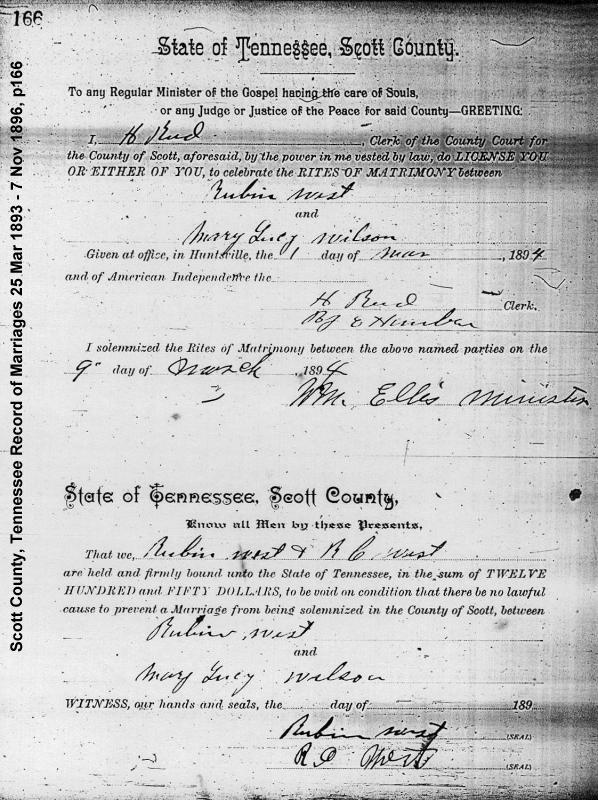 166
Scott County, Tennessee Record of Marriages 25 Mar 1893 - 7 Nov 1896, p166
State of Tennessee, Scott County.
To any Regular Minister of the Gospel having the care of Souls,
or any Judge or Justice of the Peace for said County—GREETING:
I, H Reed, Clerk of the County Court for
the County of Scott, aforesaid, by the power in me vested by law, do LICENSE YOU
OR EITHER OF YOU, to celebrate the RITES OF MATRIMONY between
Rubin West
and
Mary Lucy Wilson
Given at office, in Huntsville, the 1 day of Mar, 1894
and of American Independence the
H Reed Clerk.
By E
I solemnized the Rites of Matrimony between the above named parties on the
9 day of March, 1894
Wm. Ellis Minister
State of Tennessee, Scott County,
Know all Men by these Presents,
That we, Rubin West & R C West
are held and firmly bound unto the State of Tennessee, in the sum of TWELVE
HUNDRED and FIFTY DOLLARS, to be void on condition that there be no lawful
cause to prevent a Marriage from being solemnized in the County of Scott, between
Rubin West
and
Mary Lucy Wilson
WITNESS, our hands and seals, the day of 189
Rubin West (SEAL)
R C West (SEAL)